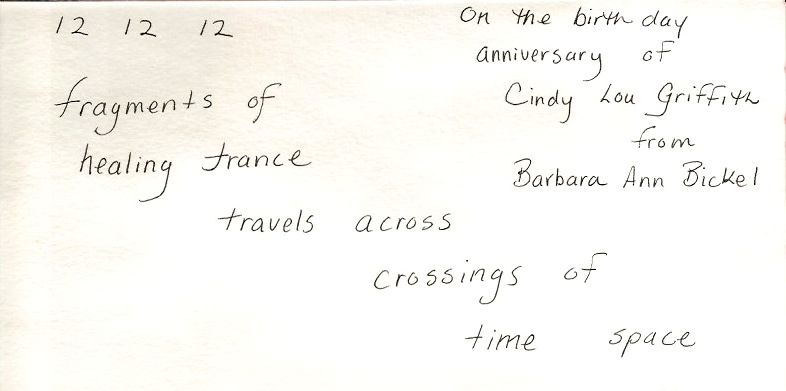 12 12 12
fragments of
healing trance
travels across
crossings of
time space
On the birth day
anniversary of
Cindy Lou Griffith
from
Barbara Ann Bickel